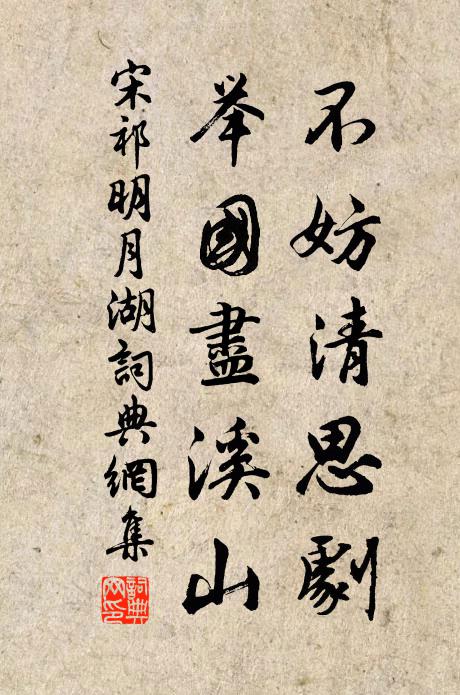 不妨清思劇
举國盡溪山
宋祁明月湖詞典網集
詞典網印